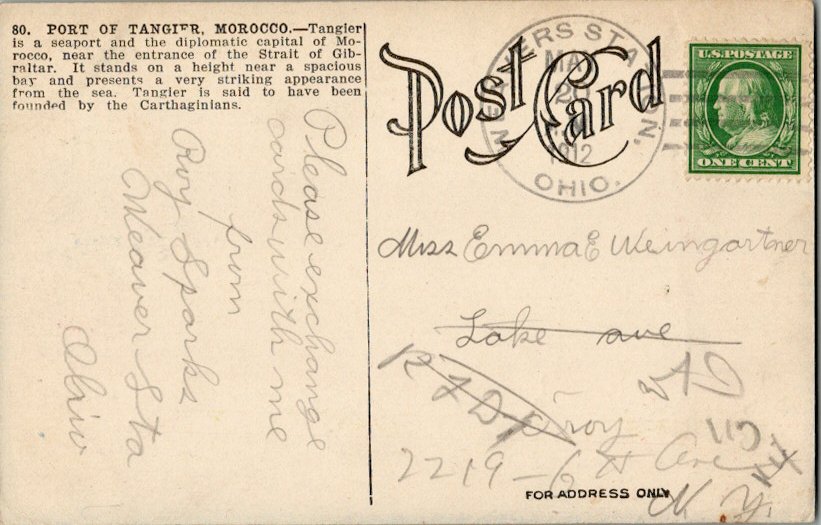 80. PORT OF TANGIER, MOROCCO.—Tangier
is a seaport and the diplomatic capital of Mo-
rocco, near the entrance of the Strait of Gib-
raltar. It stands on a height near a spacious
bay and presents a very striking appearance
from the sea. Tangier is said to have been
founded by the Carthaginians.
Please exchange
cards with me
from
Roy Sparks
Weaver Sta
Ohio
Post Card
WEAVERS STATION,
1912
OHIO.
U.S. POSTAGE
ONE CENT
Miss Emma E Weingartner
Lake ave
R F D 1
Troy
2219-6th Ave
N. Y.
FOR ADDRESS ONLY